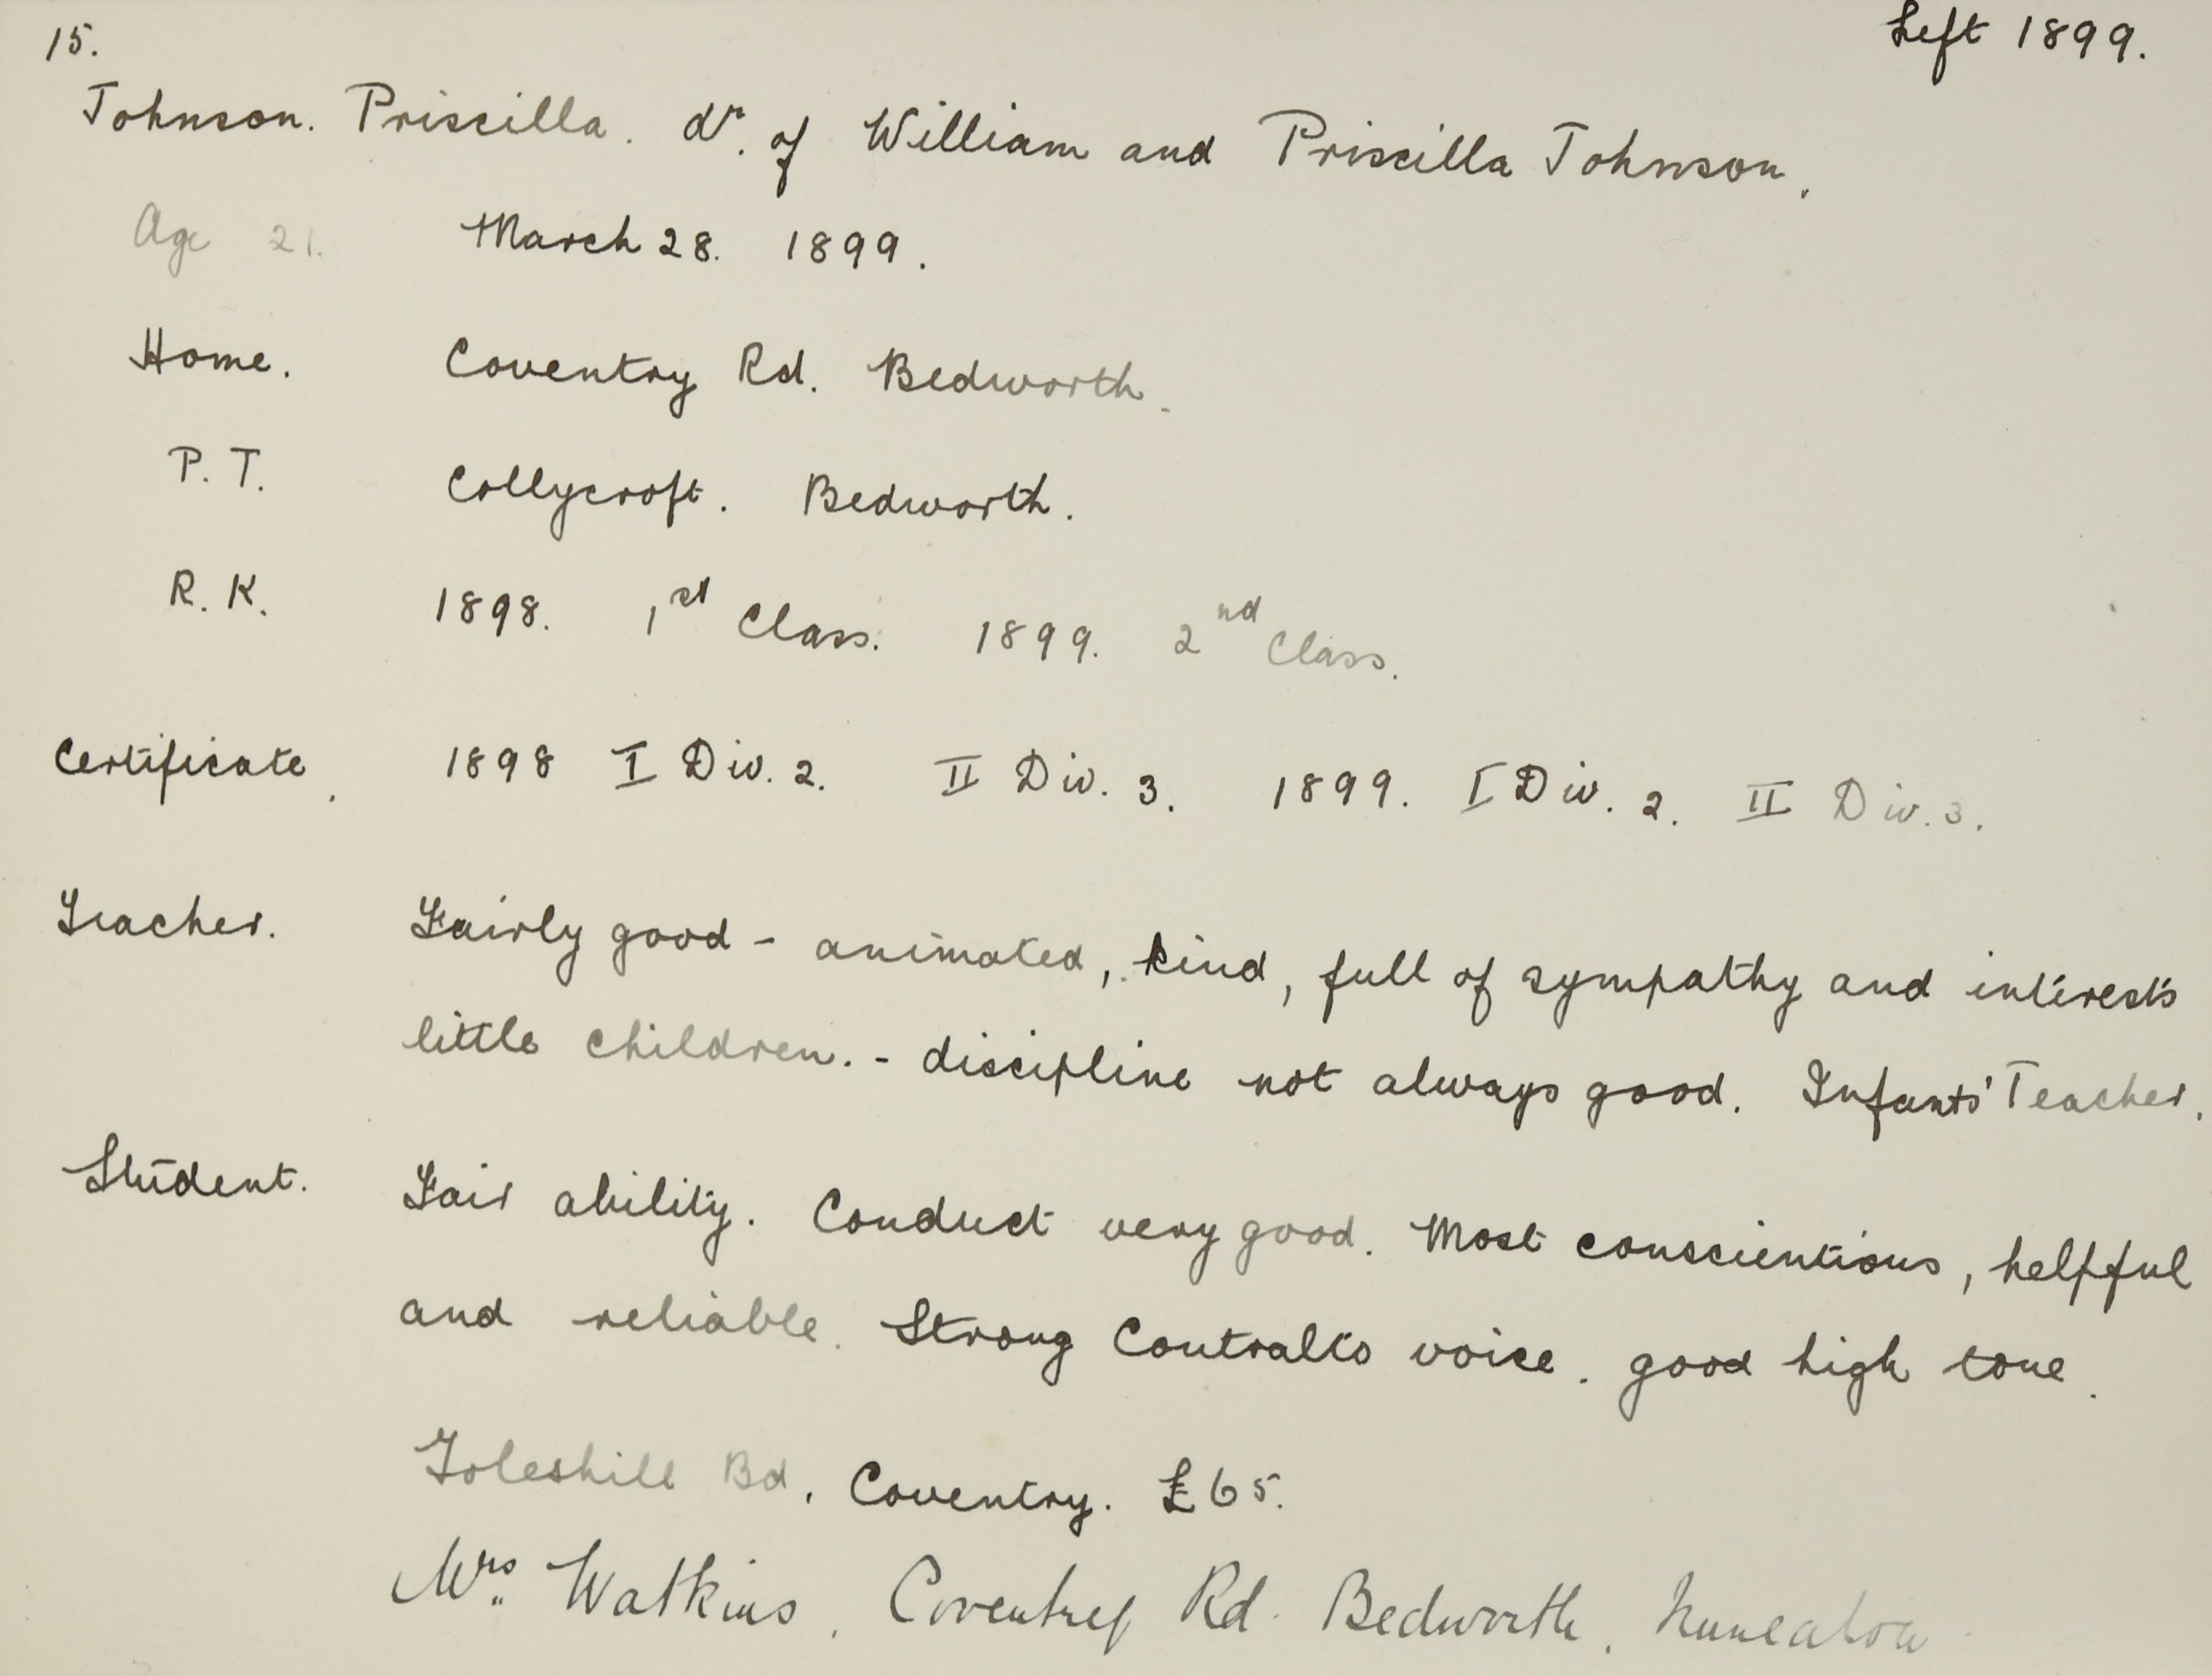 15.
Left 1899.
Johnson. Priscilla. dr. of William and Priscilla Johnson.
Age 21. March 28. 1899.
Home. Coventry Rd. Bedworth.
P. T. Collycroft. Bedworth.
R. K. 1898. 1st Class. 1899. 2nd Class.
Certificate. 1898 I Div. 2. II Div. 3. 1899. I Div. 2. II Div. 3.
Teacher. Fairly good - animated, kind, full of sympathy and interests
little children. - discipline not always good. Infants' Teacher.
Student. Fair ability. Conduct very good. Most conscientious, helpful
and reliable. Strong Contralto voice. good high tone.
Foleshill Bd, Coventry. £65.
Mrs. Watkins, Coventry Rd. Bedworth, Nuneaton